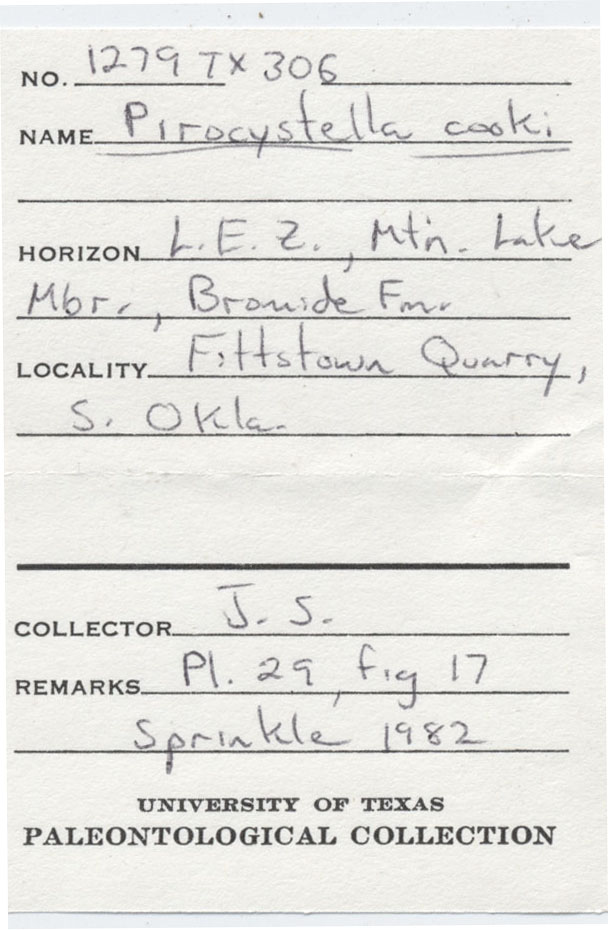 NO. 1279 TX 306
NAME Pirocystella cooki
HORIZON L.E.Z., Mtn. Lake
Mbr., Bromide Fm.
LOCALITY Fittstown Quarry,
S. Okla.
COLLECTOR J. S.
REMARKS Pl. 29, fig 17
Sprinkle 1982
UNIVERSITY OF TEXAS
PALEONTOLOGICAL COLLECTION